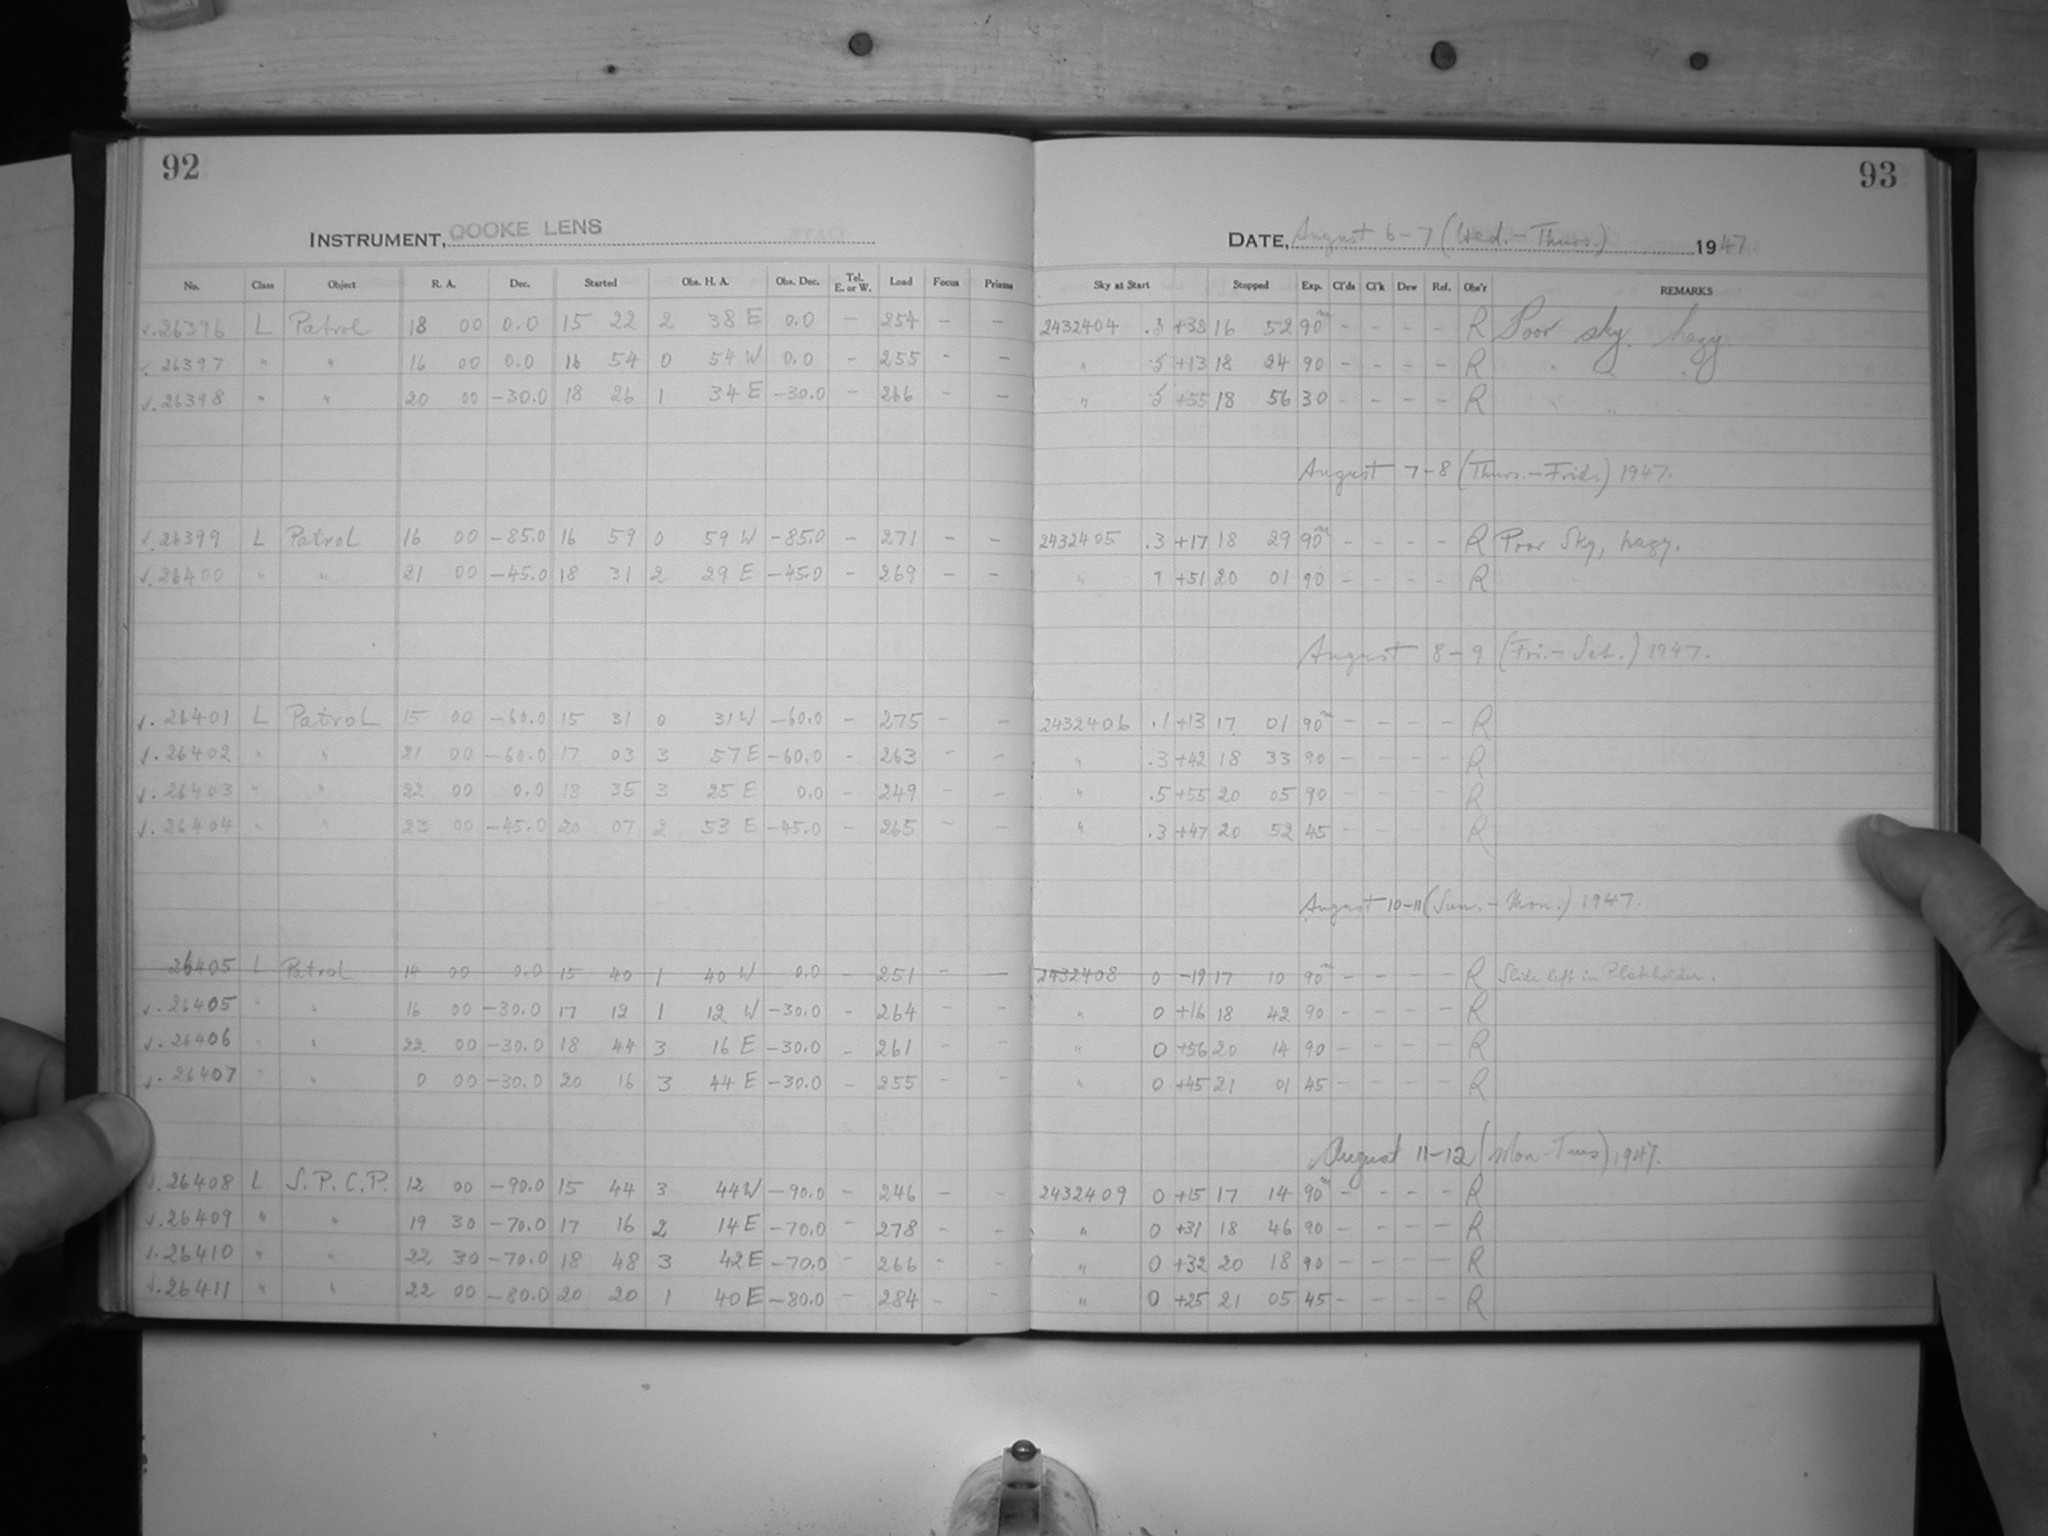 92
93
INSTRUMENT, COOKE LENS
DATE, August 6-7 (Wed.-Thurs.) 1947.
No. Class Object R. A. Dec. Started Obs. H. A. Obs. Dec. Tel. E. or W. Load Focus Prisms Sky at Start Stopped Exp. Cl'ds Cl'k Dew Ref. Obs'r REMARKS
√.26396 L Patrol 18 00 0.0 15 22 2 38 E 0.0 - 254 - - 2432404 .3 +38 16 52 90m - - - - R Poor sky. hazy.
√.26397 " " 16 00 0.0 16 54 0 54 W 0.0 - 255 - - " .5 +13 18 24 90 - - - - R " " "
√.26398 " " 20 00 -30.0 18 26 1 34 E -30.0 - 266 - - " .5 +55 18 56 30 - - - - R " " "
August 7-8 (Thurs.-Frid.) 1947.
√.26399 L Patrol 16 00 -85.0 16 59 0 59 W -85.0 - 271 - - 2432405 .3 +17 18 29 90m - - - - R Poor Sky, hazy.
√.26400 " " 21 00 -45.0 18 31 2 29 E -45.0 - 269 - - " +51 20 01 90 - - - - R
August 8-9 (Fri.-Sat.) 1947.
√.26401 L Patrol 15 00 -60.0 15 31 0 31 W -60.0 - 275 - - 2432406 .1 +13 17 01 90m - - - - R
√.26402 " " 21 00 -60.0 17 03 3 57 E -60.0 - 263 - - " .3 +42 18 33 90 - - - - R
√.26403 " " 22 00 0.0 18 35 3 25 E 0.0 - 249 - - " .5 +55 20 05 90 - - - - R
√.26404 " " 23 00 -45.0 20 07 2 53 E -45.0 - 265 - - " .3 +47 20 52 45 - - - - R
August 10-11 (Sun.-Mon.) 1947.
26405 L Patrol 14 00 0.0 15 40 1 40 W 0.0 - 251 - - 2432408 0 -19 17 10 90m - - - - R Slide left in Plateholder.
√.26405 " " 16 00 -30.0 17 12 1 12 W -30.0 - 264 - - " 0 +16 18 42 90 - - - - R
√.26406 " " 22 00 -30.0 18 44 3 16 E -30.0 - 261 - - " 0 +56 20 14 90 - - - - R
√.26407 " " 0 00 -30.0 20 16 3 44 E -30.0 - 255 - - " 0 +45 21 01 45 - - - - R
August 11-12 (Mon-Tues) 1947.
√.26408 L S.P.C.P. 12 00 -90.0 15 44 3 44 W -90.0 - 246 - - 2432409 0 +15 17 14 90m - - - - R
√.26409 " " 19 30 -70.0 17 16 2 14 E -70.0 - 278 - - " 0 +31 18 46 90 - - - - R
√.26410 " " 22 30 -70.0 18 48 3 42 E -70.0 - 266 - - " 0 +32 20 18 90 - - - - R
√.26411 " " 22 00 -80.0 20 20 1 40 E -80.0 - 284 - - " 0 +25 21 05 45 - - - - R